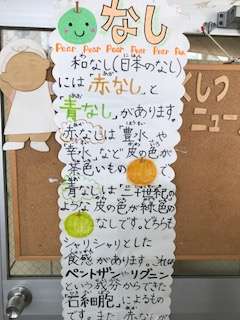 なし
Pear Pear Pear Pear Pear Pear
和なし(日本のなし)
には「赤なし」と
「青なし」があります。
赤なしは「豊水」や
「幸水」など皮の色が
茶色いもの
青なしは「二十世紀」の
ような皮の色が緑色の
なしです。どちらも
シャリシャリとした
食感があります。これは
ペントザンやリグニン
という成分からできた
「石細胞」によるもので
す。また、赤なしが
くしつ
ニュー